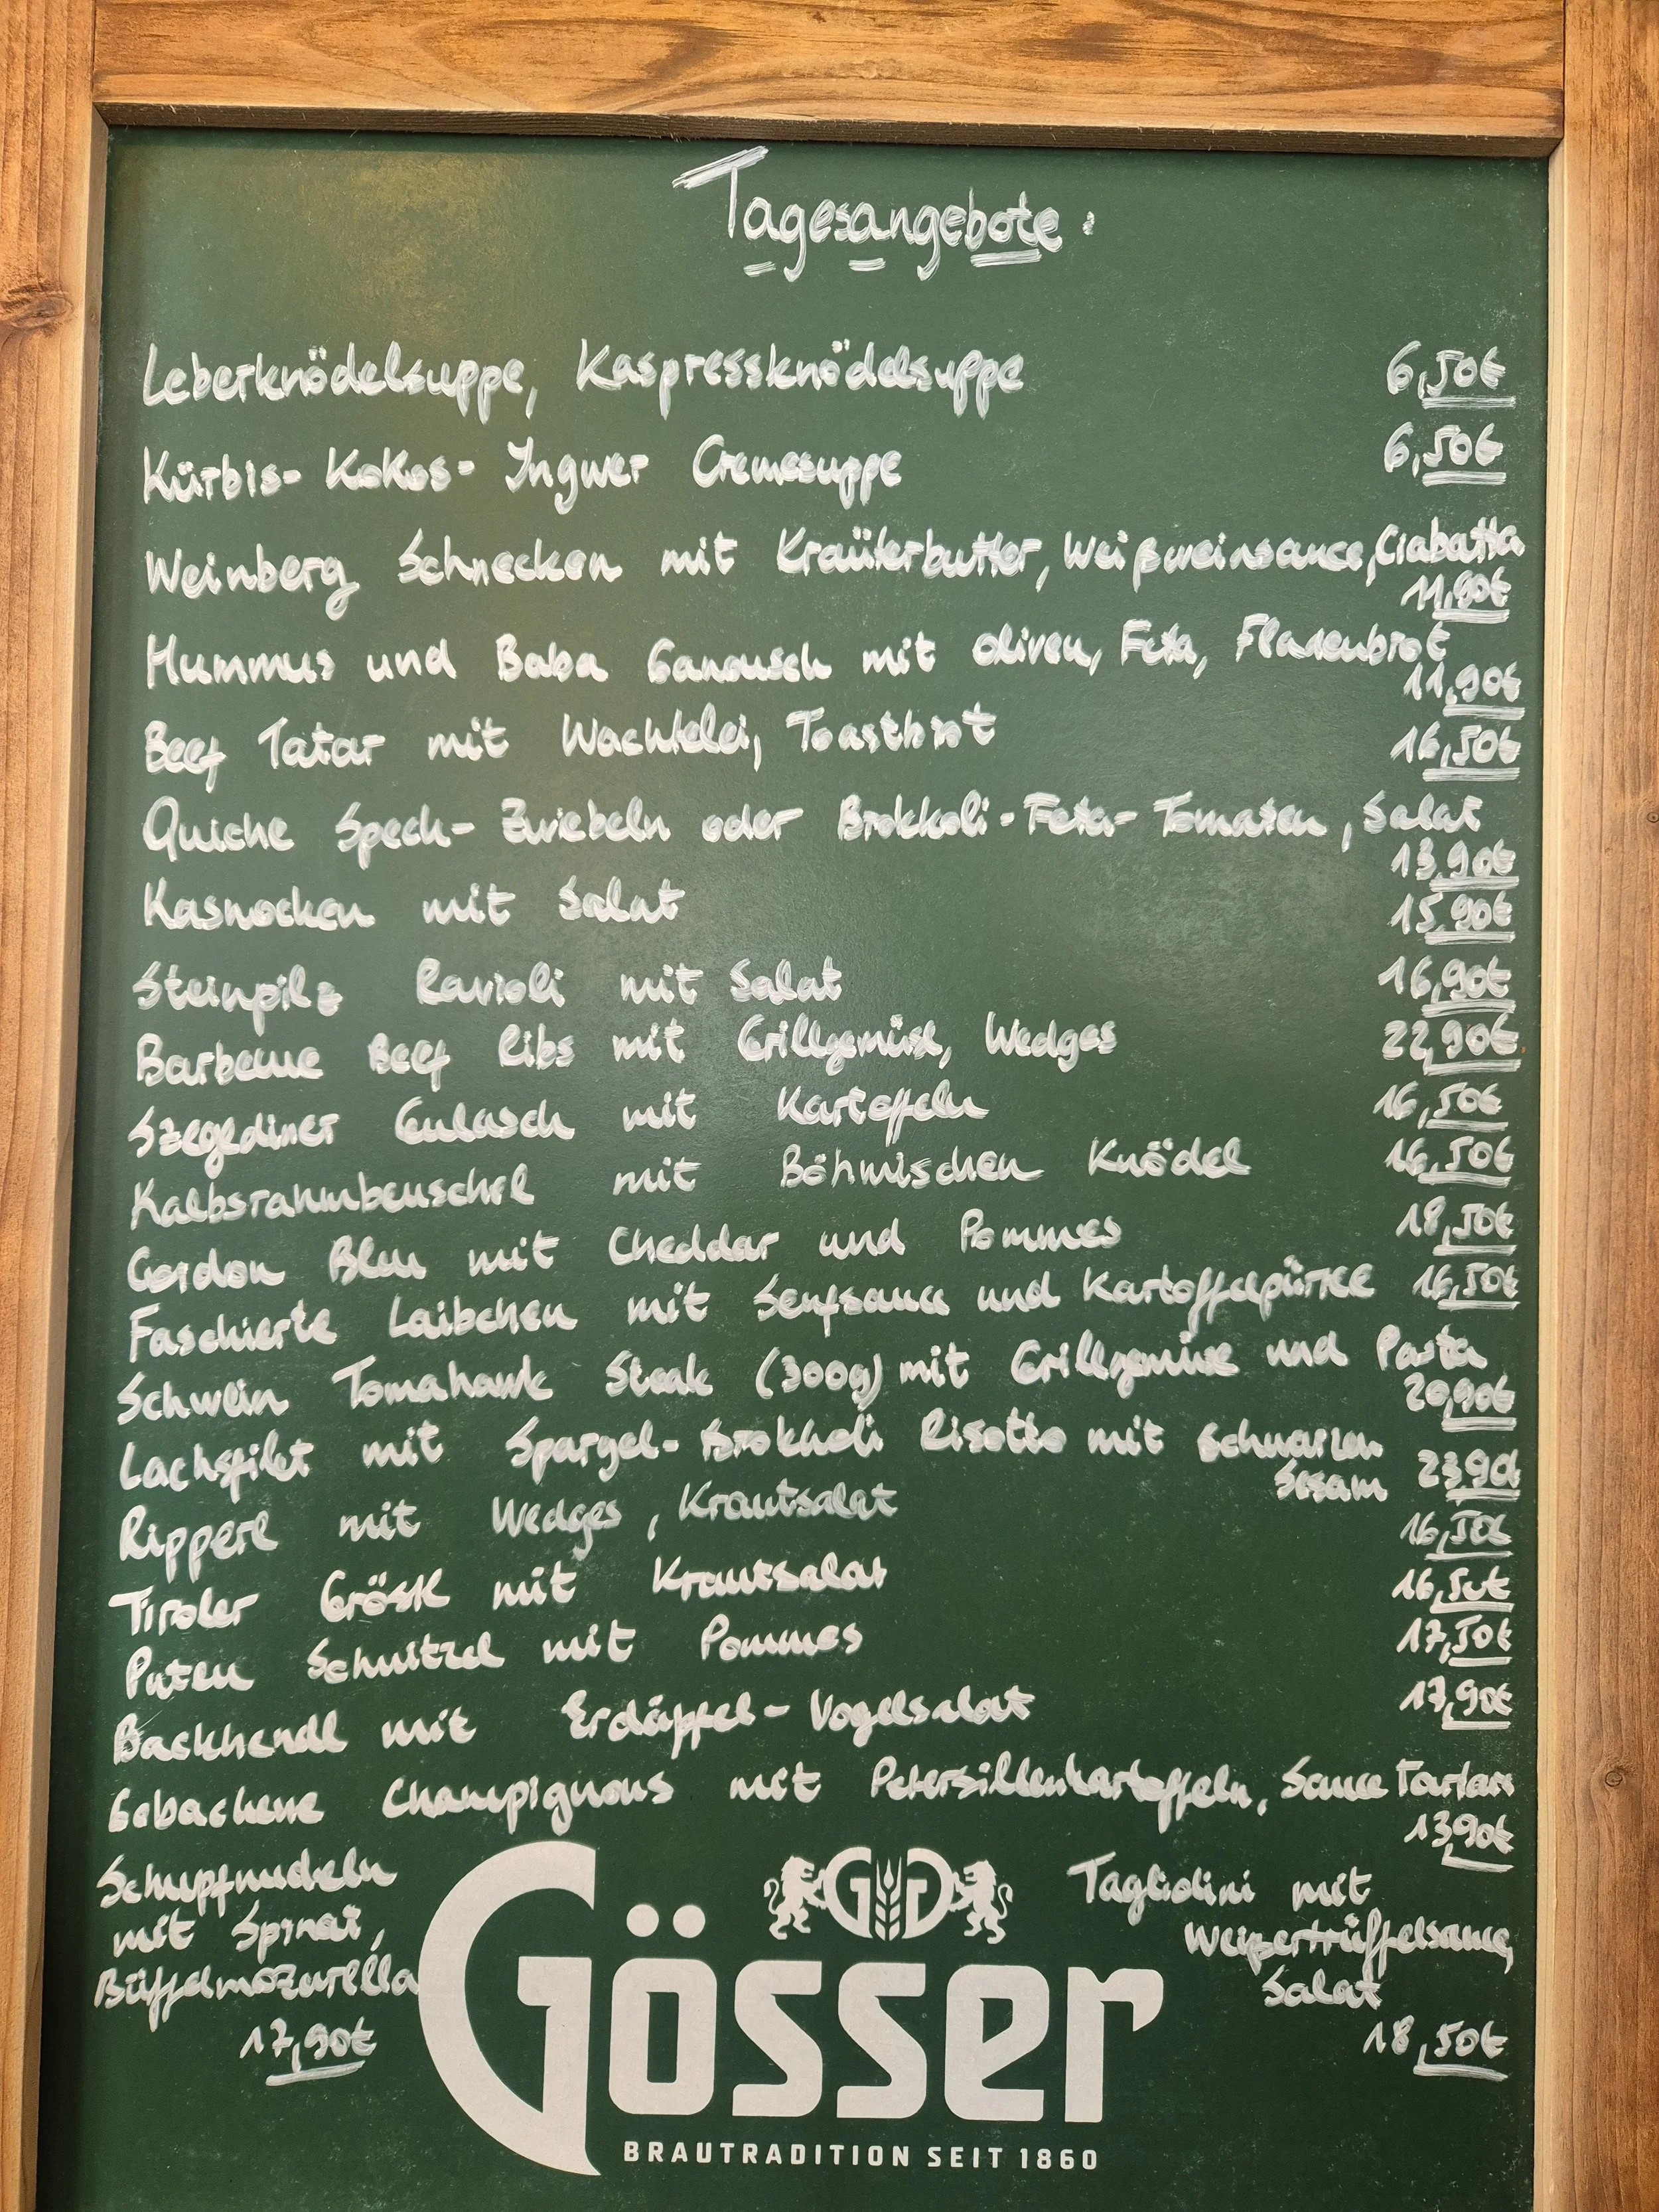 Tagesangebote:
Leberknödelsuppe, Kaspressknödelsuppe 6,50€
Kürbis- Kokos- Ingwer Cremesuppe 6,50€
Weinberg Schnecken mit Kräuterbutter, Weißweinsauce, Ciabatta
11,90€
Hummus und Baba Ganousch mit Oliven, Feta, Fladenbrot
11,90€
Beef Tatar mit Wachtelei, Toastbrot 16,50€
Quiche Speck- Zwiebeln oder Brokkoli- Feta- Tomaten, Salat
13,90€
Kasnocken mit Salat 15,90€
Steinpilz Ravioli mit Salat 16,90€
Barbecue Beef Ribs mit Grillgemüse, Wedges 22,90€
Szegediner Gulasch mit Kartoffeln 16,50€
Kalbsrahmbeuschel mit Böhmischen Knödel 16,50€
Gordon Bleu mit Cheddar und Pommes 18,50€
Faschierte Laibchen mit Senfsauce und Kartoffelpürree 16,50€
Schwein Tomahawk Steak (300g) mit Grillgemüse und Pasta
20,90€
Lachsfilet mit Spargel- Brokkoli Risotto mit schwarzen
Sesam 23,90€
Ripperl mit Wedges, Krautsalat 16,50€
Tiroler Gröstl mit Krautsalat 16,50€
Puten Schnitzel mit Pommes 17,50€
Backhendl mit Erdäpfel- Vogelsalat 17,90€
Gebackene Champignons mit Petersilienkartoffeln, Sauce Tartare
13,90€
Schupfnudeln
mit Spinat,
Büffelmozarella
17,90€
Tagliolini mit
Weißertrüffelsauce,
Salat
18,50€
GG
Gösser
BRAUTRADITION SEIT 1860